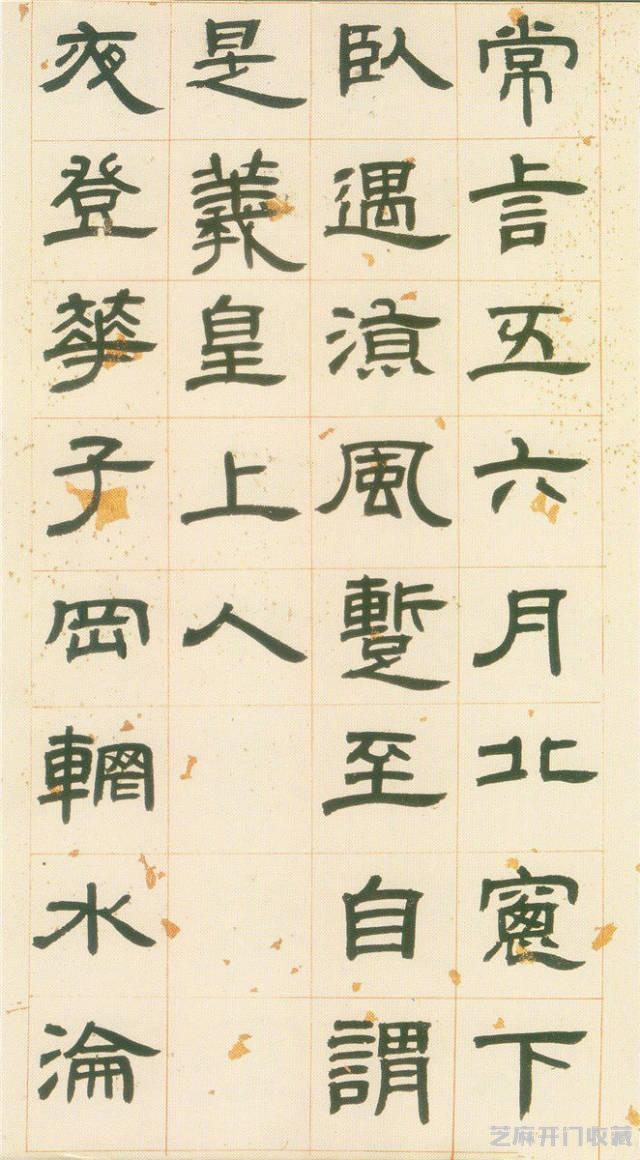 常言五六月北窻下
臥遇涼風蹔至自謂
是羲皇上人
夜登華子岡輞水淪
芝麻开门收藏